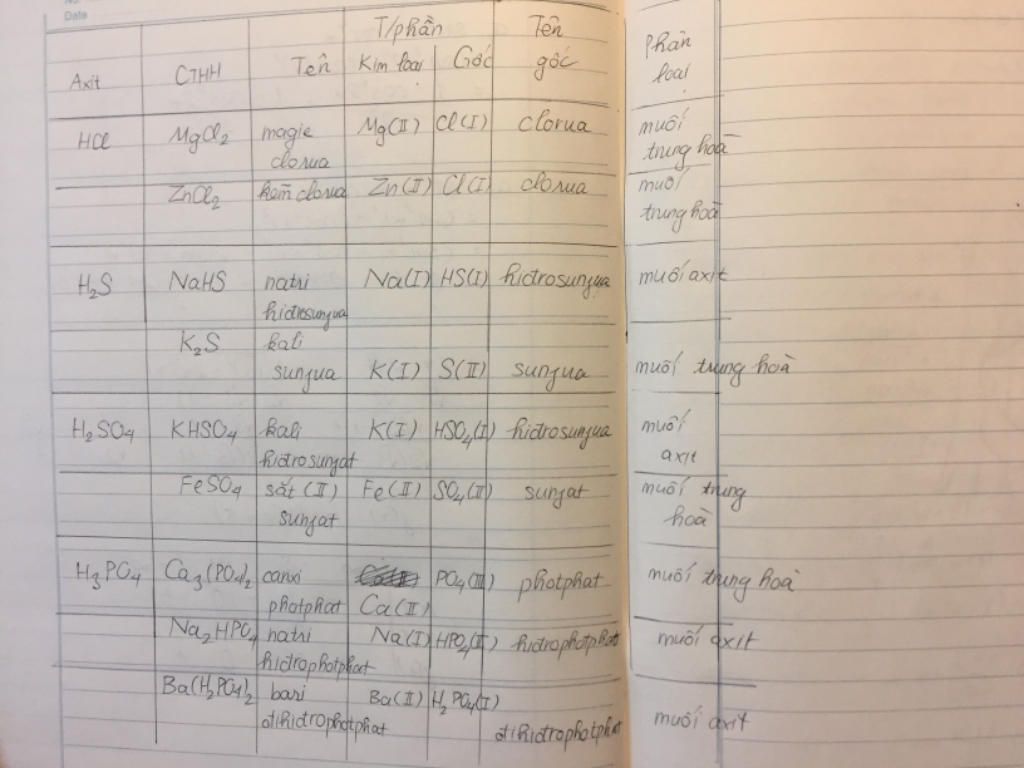 No.
Date
T/phần Tên
Axit CTHH Tên Kim loại Gốc gốc Phân loại
HCl MgCl2 magie clorua Mg(II) Cl(I) clorua muối trung hoà
ZnCl2 kẽm clorua Zn(II) Cl(I) clorua muối trung hoà
H2S NaHS natri hiđrosunfua Na(I) HS(I) hiđrosunfua muối axit
K2S kali sunfua K(I) S(II) sunfua muối trung hoà
H2SO4 KHSO4 kali hiđrosunfat K(I) HSO4(I) hiđrosunfua muối axit
FeSO4 sắt (II) sunfat Fe(II) SO4(II) sunfat muối trung hoà
H3PO4 Ca3(PO4)2 canxi photphat Ca(II) PO4(III) photphat muối trung hoà
Na2HPO4 natri hiđrophotphat Na(I) HPO4(II) hiđrophotphat muối axit
Ba(H2PO4)2 bari đihiđrophotphat Ba(II) H2PO4(I) đihiđrophotphat muối axit